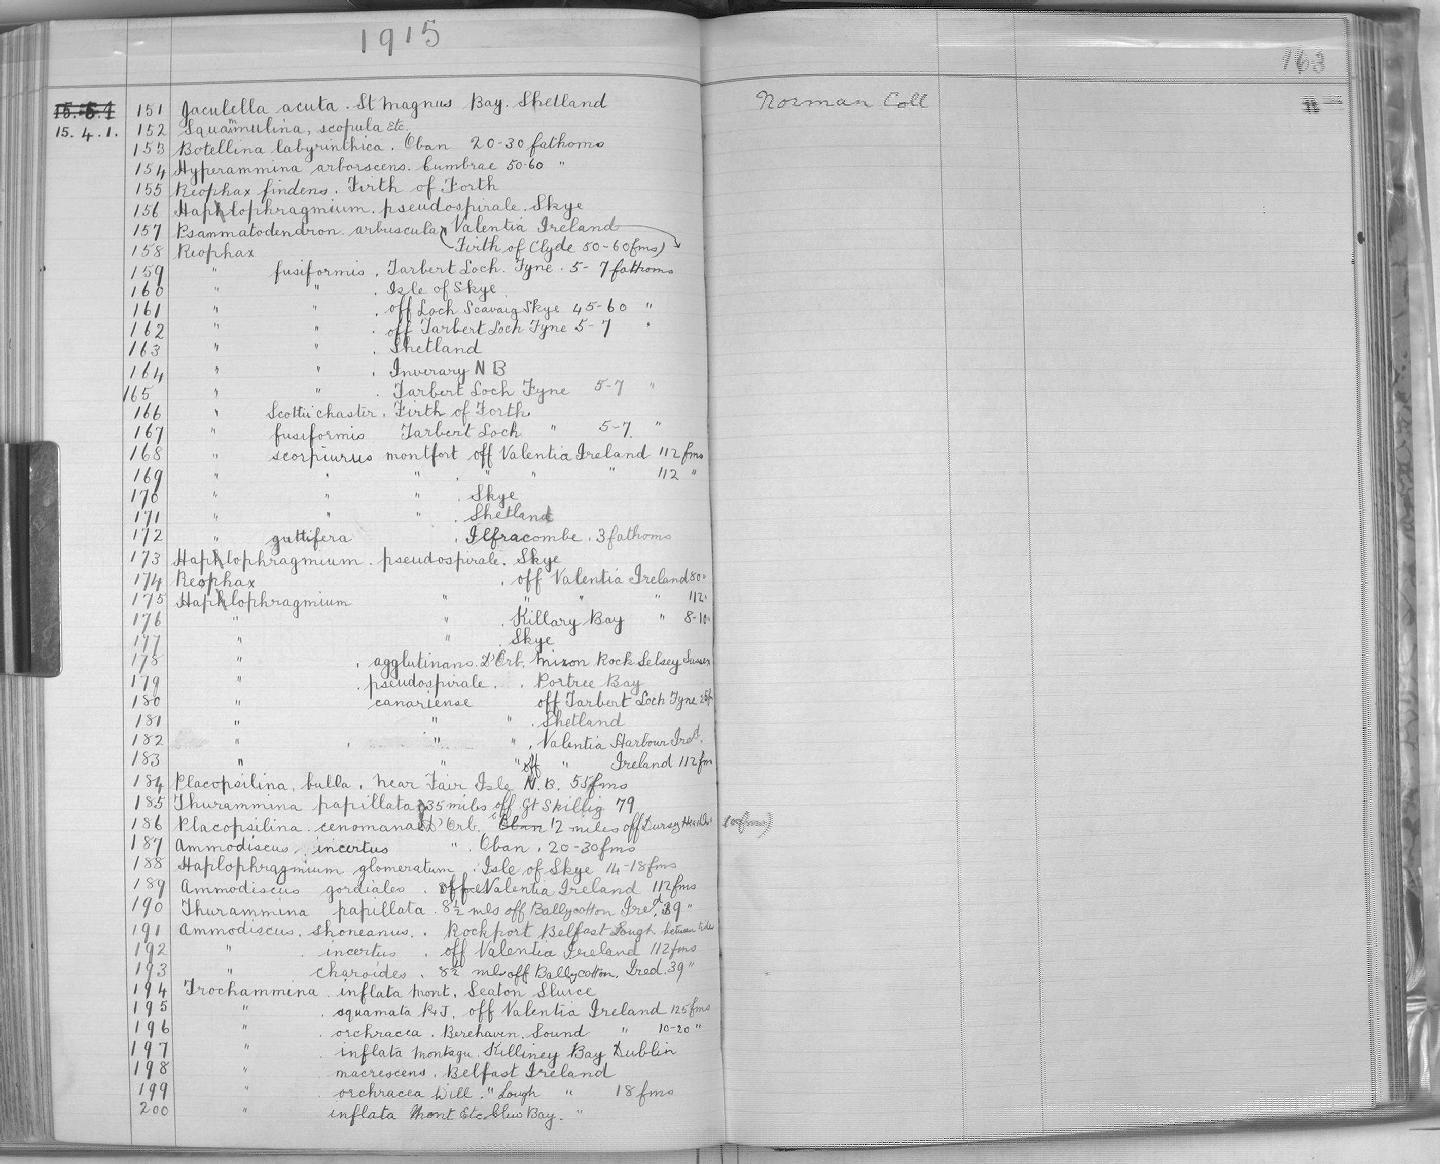 1915
163
15.5.1 151 Jaculella acuta. St Magnus Bay. Shetland Norman Coll "
15.4.1. 152 Squammulina, scopula Etc.
153 Botellina labyrinthica. Oban 20-30 fathoms
154 Hyperammina arborscens. Cumbrae 50-60 "
155 Reophax findens. Firth of Forth
156 Haphlophragmium. pseudospirale. Skye
157 Psammatodendron. arbuscula Valentia Ireland
158 Reophax (Firth of Clyde 50-60 fms)
159 " fusiformis. Tarbert Loch. Fyne. 5-7 fathoms
160 " " . Isle of Skye
161 " " . off Loch Scavaig Skye 45-60 "
162 " " . off Tarbert Loch Fyne 5-7 "
163 " " . Shetland
164 " " . Inverary N B
165 " " . Tarbert Loch Fyne 5-7 "
166 " Scottii chaster. Firth of Forth
167 " fusiformis Tarbert Loch " 5-7. "
168 " scorpiurus montfort off Valentia Ireland 112 fms
169 " " " . " " " 112 "
170 " " " . Skye
171 " " " . Shetland
172 " guttifera . Ilfracombe. 3 fathoms
173 Haphlophragmium. pseudospirale. Skye
174 Reophax . off Valentia Ireland 80"
175 Haphlophragmium " " " " 112"
176 " " . Killary Bay " 8-10"
177 " " . Skye
178 " . agglutinans. D'Orb. Mixon Rock Selsey Sussex
179 " . pseudospirale. . Portree Bay
180 " canariense off Tarbert Loch Fyne
181 " " " . Shetland
182 " . " " . Valentia Harbour Ired.
183 " " " off " Ireland 112 fm
184 Placopsilina. bulla. near Fair Isle N.B. 55 fms
185 Thurammina papillata 35 miles off Gt Skillig 79
186 Placopsilina. cenomana D'Orb. Oban 12 miles off Dursey Head
187 Ammodiscus. incertus " . Oban. 20-30 fms
188 Haplophragmium glomeratum . Isle of Skye 14-18 fms
189 Ammodiscus gordiales . off Valentia Ireland 112 fms
190 Thurammina papillata. 8½ mls off Ballycotton Ired. 39 "
191 Ammodiscus. shoneanus. . Rockport Belfast Lough between tides
192 " . incertus . off Valentia Ireland 112 fms
193 " charoides . 8½ mls off Ballycotton. Ired. 39 "
194 Trochammina. inflata Mont. Seaton Sluice
195 " . squamata P&J. off Valentia Ireland 125 fms
196 " . orchracea. Berehaven. Sound " 10-20 "
197 " . inflata Montagu. Killiney Bay Dublin
198 " . macrescens. Belfast Ireland
199 " . orchracea Will. " Lough " 18 fms
200 " inflata Mont Etc Clew Bay. "